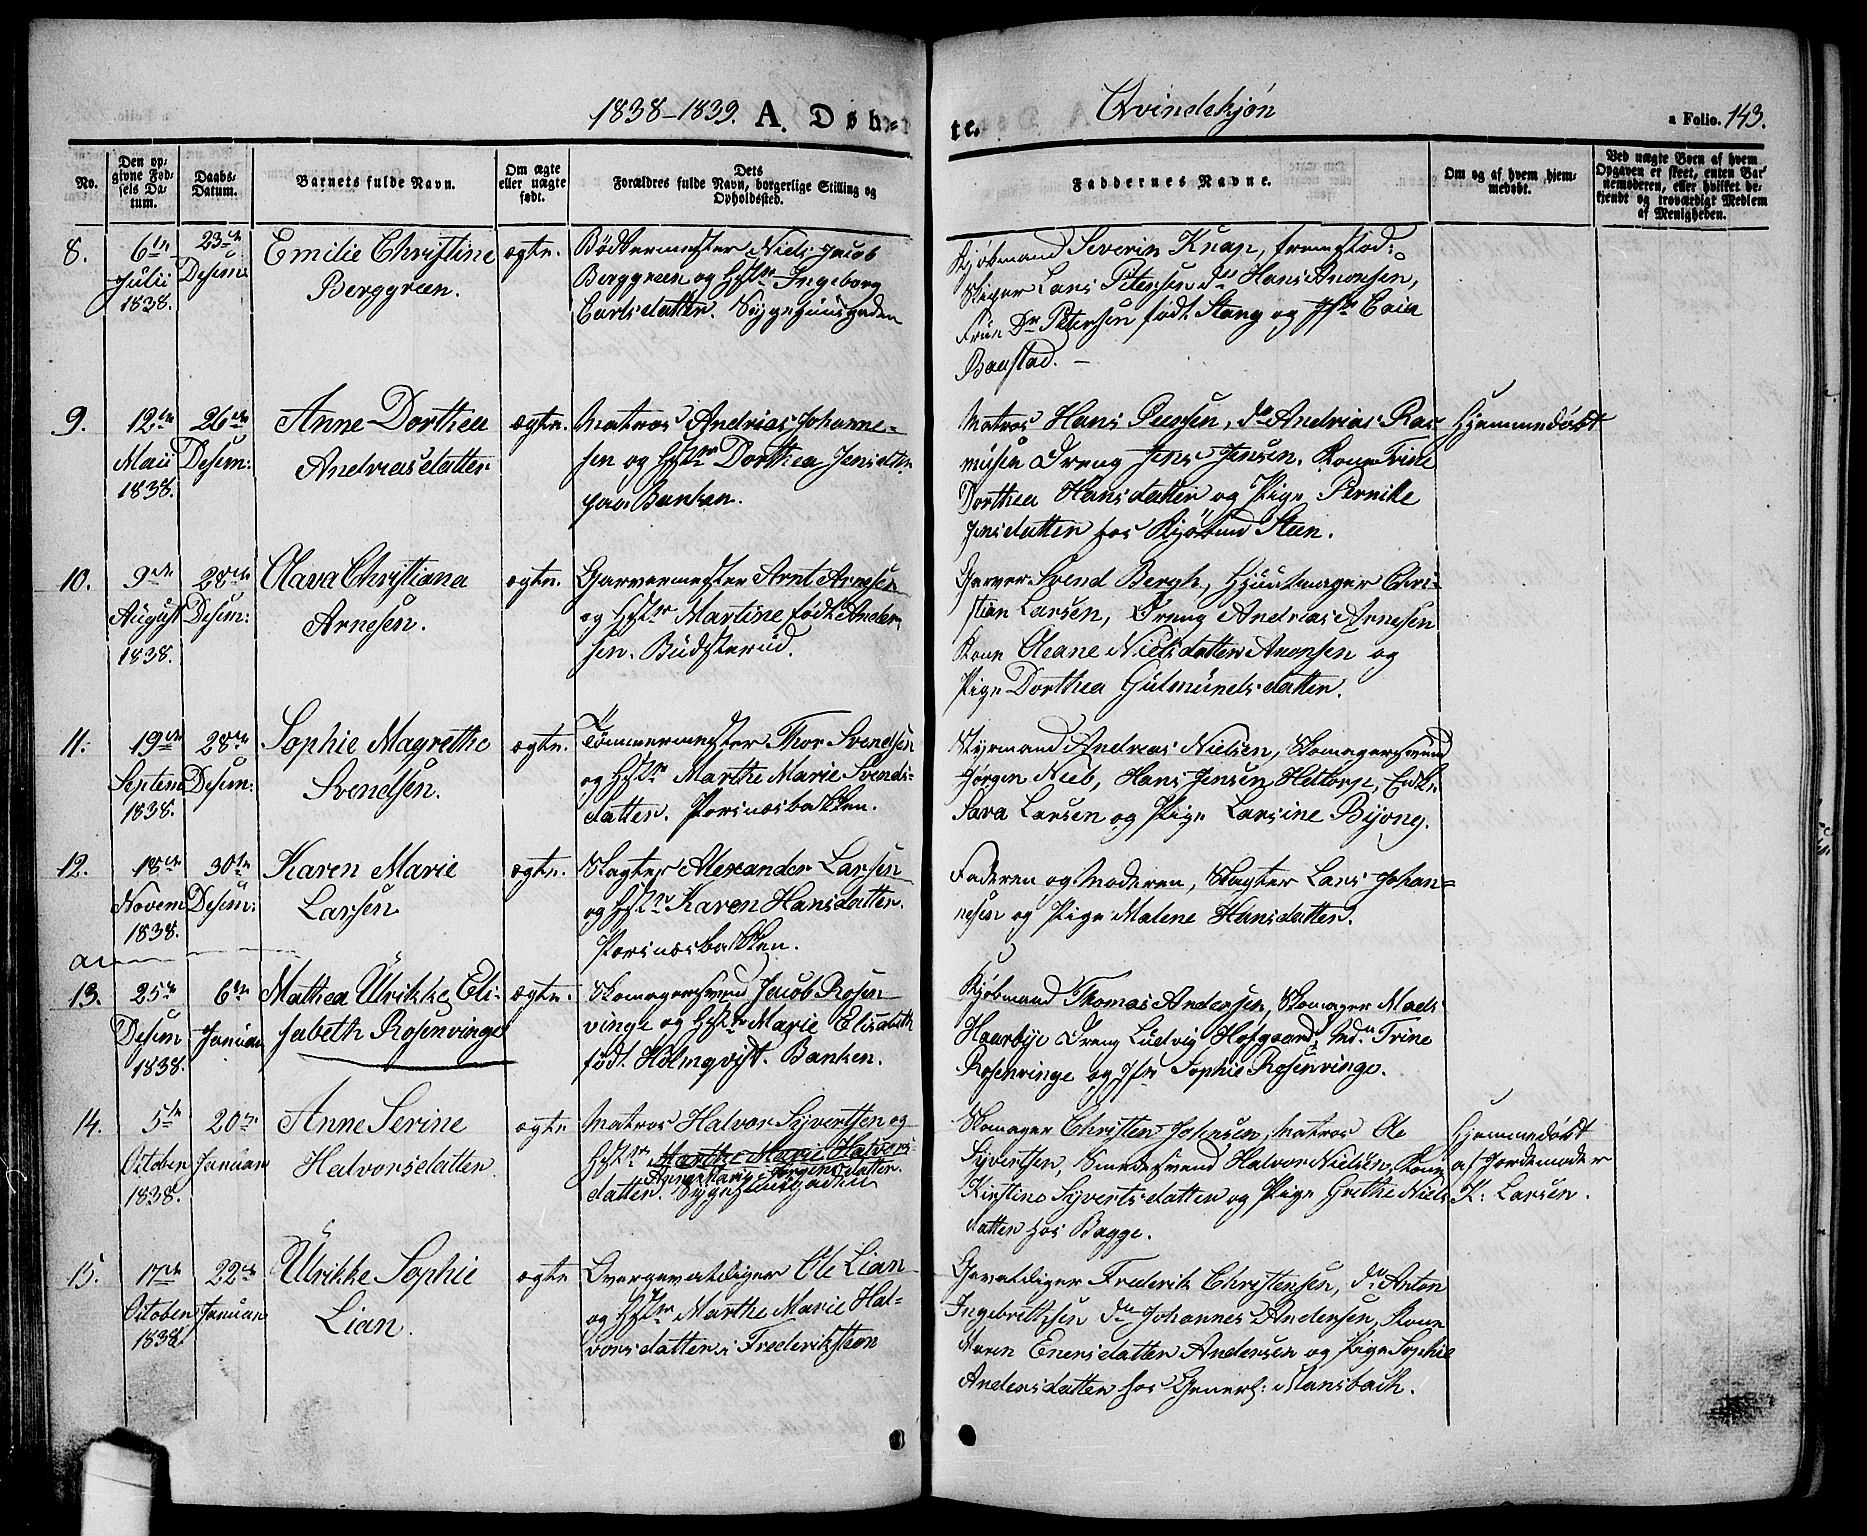 1838-1839. A. Døb-
te. Qvindekjøn a Folio. 143.
No.
Den op-
givne Fød-
sels Da-
tum.
Daabs-
Datum.
Barnets fulde Navn.
Om ægte
eller uægte
født.
Dets
Forældres fulde Navn, borgerlige Stilling og
Opholdssted.
Faddernes Navne.
Om og af hvem hjem-
medøbt.
Ved uægte Born af hvem
Opgaven er skeet, enten Bar-
nemoderen, eller hvilket be-
kjendt og troværdigt Medlem
af Menigheden.
8.
6te
Julii
1838.
23de
Desem:
Emilie Christine
Berggreen.
ægte.
Bødkermester Niels Jacob
Berggreen og Hstr Ingeborg
Carlsdatter. Sygehuusgaden
Kjøbmand Severin Knap,
Lars Petersen do Hans Aronsen,
Frue Dr Petersen født Stang og Jfr Caia
9.
12te
Maii
1838.
26de
Desem:
Anne Dorthea
Andreasdatter
ægte.
Matros Andreas Johanne-
sen og Hstr Dorthea Jensdtr
paa Banken.
Matros Hans Juusen, do Andreas Ras-
musen Dreng Jens Jensen, Kone Trine
Dorthea Hansdatter og Pige Pernille
Jensdatter hos Kjøbmd Steen.
Hjemmedøbt
10.
9de
August
1838.
28de
Desem:
Olava Christiana
Arnesen.
ægte.
Garvermester Arnt Arnesen
og Hstr Martine født Ander-
sen. Büdsterud.
Garver Svend Bergh, Hjulmager Chri-
stian Larsen, Dreng Andreas Arnesen
Kone Oleane Nielsdatter Aronsen og
Pige Dorthea Gulmundsdatter.
11.
19de
Septem
1838.
28de
Desem:
Sophie Magrethe
Svendsen.
ægte.
Tømmermester Thor Svendsen
og Hstr Marthe Marie Svends-
datter. Porsnæsbakken.
Styrmand Andreas Nielsen, Skomagersvend
Jørgen Nieb, Hans Jensen Heltorp, Enke
Sara Larsen og Pige Larsine Byong.
12.
18de
Novem
1838.
30te
Desem:
Karen Marie
Larsen
ægte.
Slagter Alexander Larsen
og Hstr Karen Hansdatter.
Porsnæsbakken.
Faderen og Moderen, Slagter Lars Johan-
nesen og Pige Malene Hansdatter.
13.
25de
Desem
1838.
6te
Januar
Mathea Ulrikke Eli-
sabeth Rosenvinge
ægte.
Skomagersvend Jacob Rosen
vinge og Hstr Marie Elisabeth
født Holmqvist. Banken.
Kjøbmand Thomas Andersen, Skomager Mads
Haarbye Dreng Ludvig Hofgaard, Md. Trine
Rosenvinge og Jfr Sophie Rosenvinge.
14.
5te
October
1838.
20de
Januar
Anne Serine
Halvorsdatter
ægte
Matros Halvor Syvertsen og
Hstr Marthe Marie Halvors-
Anne Marie Jørgensdatter.
datter. Sygehuusgaden
Skomager Christen Johnsen, Matros Ole
Syvertsen, Smedesvend Halvor Nielsen, Kone
Kirstine Syvertsdatter og Pige Grethe Niels
datter hos Bagge.
Hjemmedøbt
af Jordemoder
K. Larsen.
15.
17de
October
1838.
22de
Januar
Ulrikke Sophie
Lian.
ægte
Overgevaldiger Ole Lian
og Hstr Marthe Marie Hal-
vorsdatter i Frederiksteen
Gevaldiger Frederik Christensen, do Anton
Ingebrethsen do Johannes Andersen, Kone
Maren Enersdatter Andersen og Pige Sophie
Andersdatter hos General: Mansbach.